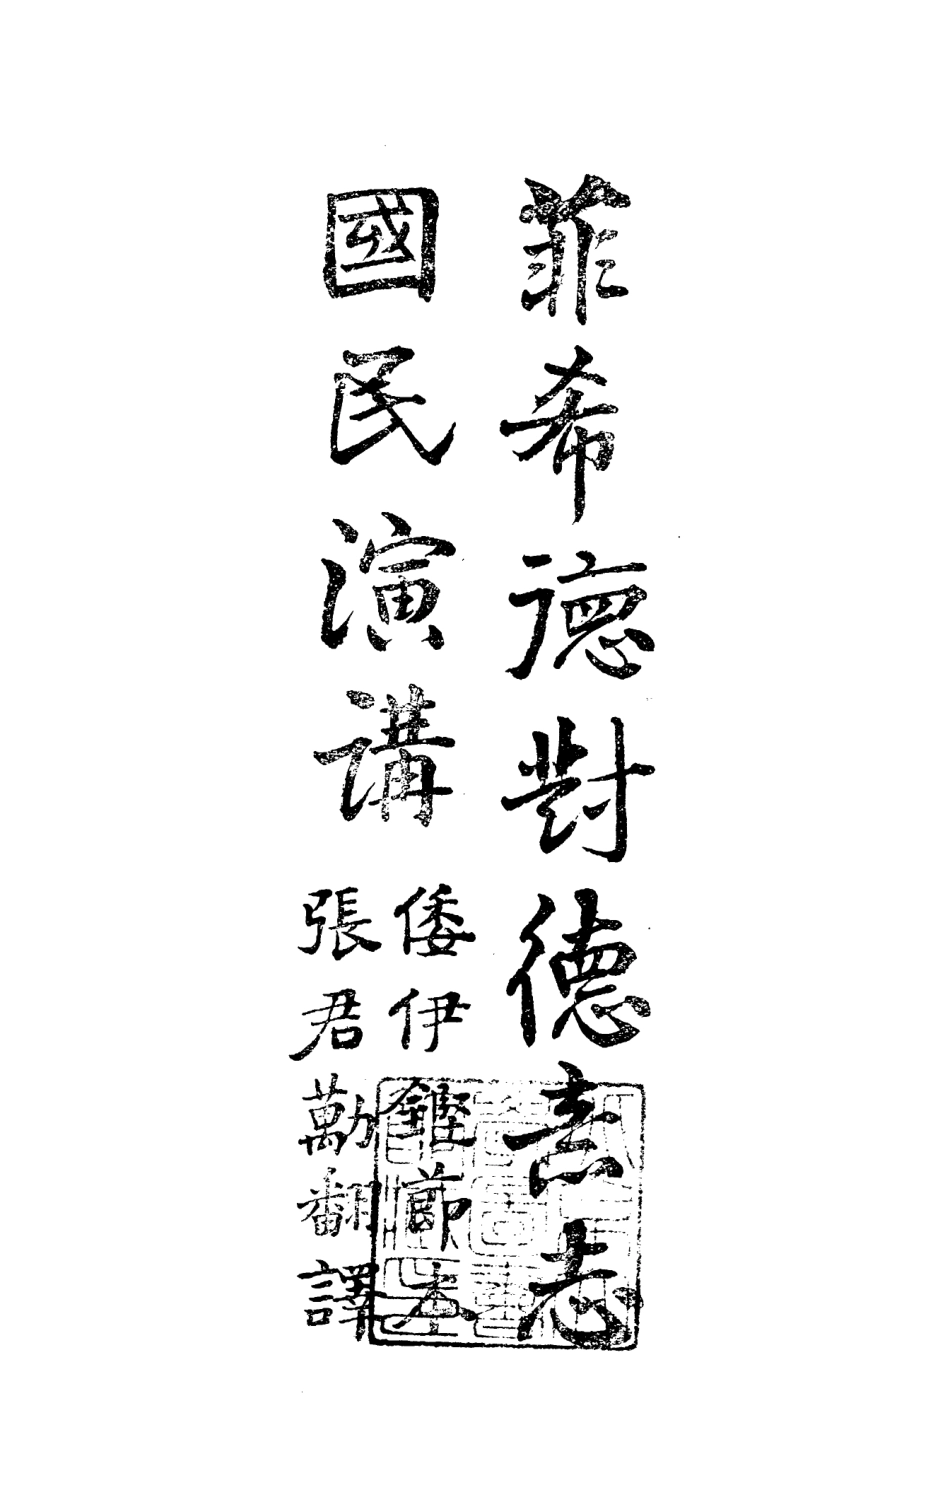 菲希德對德意志
國民演講
倭伊鏗節本
張君勱翻譯